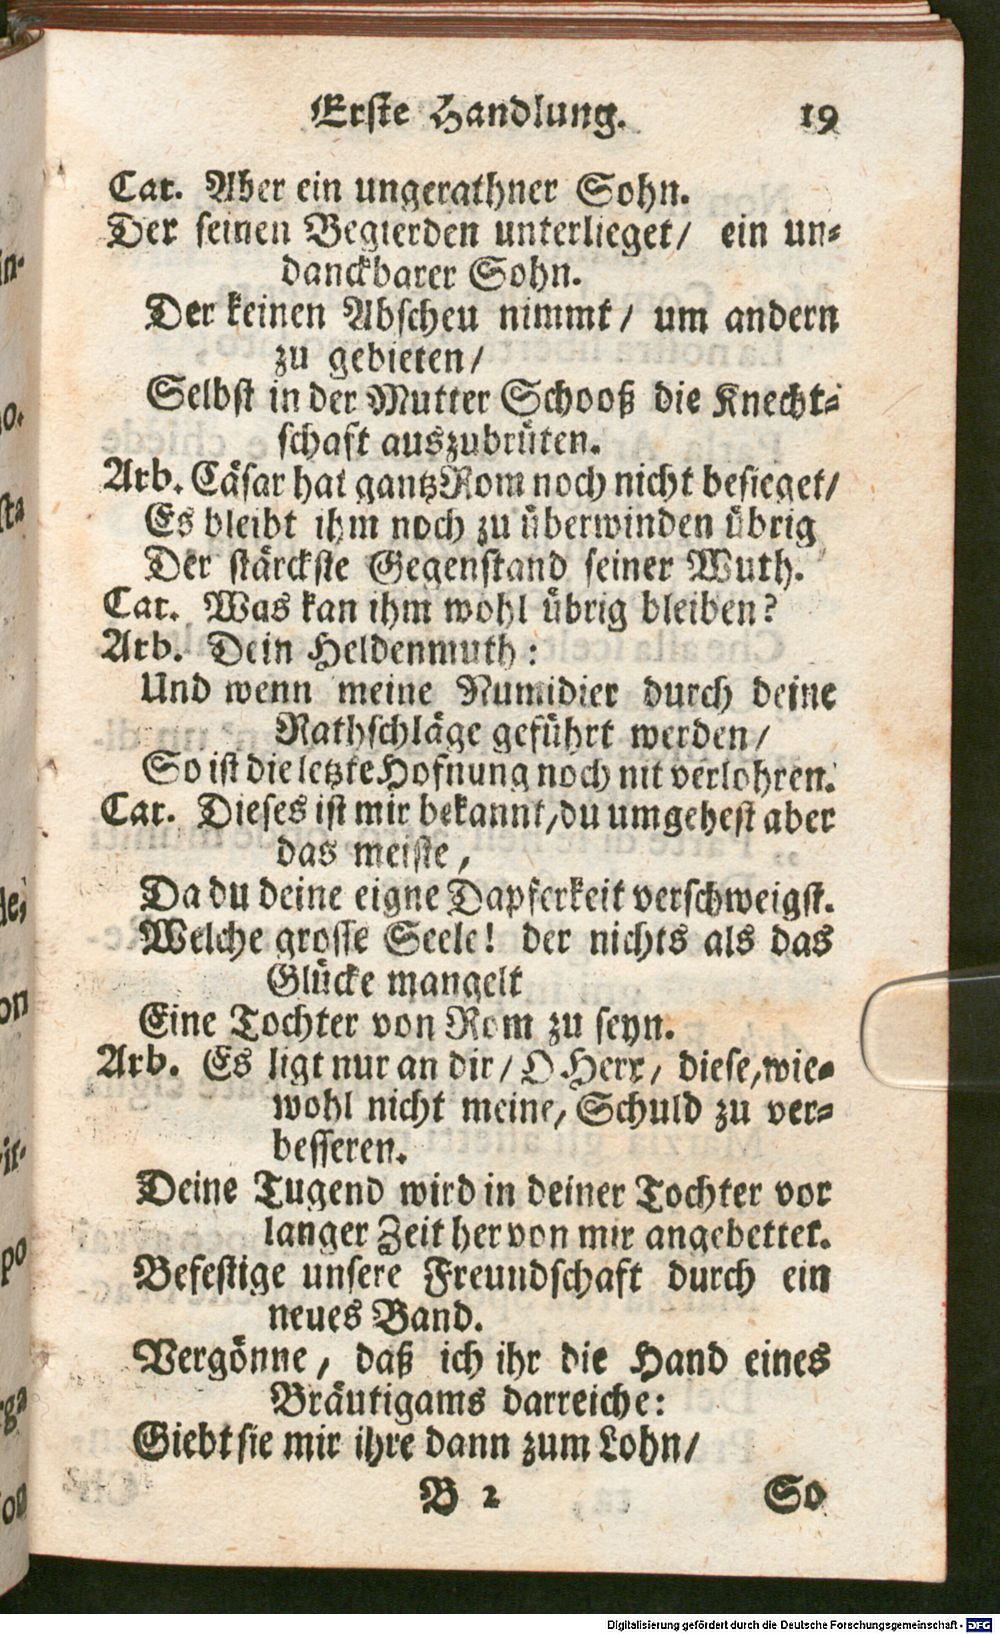 Erste Handlung. 19
Cat. Aber ein ungerathner Sohn.
Der seinen Begierden unterlieget/ ein un-
danckbarer Sohn.
Der keinen Abscheu nimmt/ um andern
zu gebieten/
Selbst in der Mutter Schooß die Knecht-
schaft auszubrüten.
Arb. Cäsar hat gantz Rom noch nicht besieget/
Es bleibt ihm noch zu überwinden übrig
Der stärckste Gegenstand seiner Wuth.
Cat. Was kan ihm wohl übrig bleiben?
Arb. Dein Heldenmuth:
Und wenn meine Numidier durch deine
Rathschläge geführt werden/
So ist die letzte Hofnung noch nit verlohren.
Cat. Dieses ist mir bekannt/du umgehest aber
das meiste,
Da du deine eigne Dapferkeit verschweigst.
Welche grosse Seele! der nichts als das
Glücke mangelt
Eine Tochter von Rom zu seyn.
Arb. Es ligt nur an dir/ O Herr/ diese, wie-
wohl nicht meine, Schuld zu ver-
besseren.
Deine Tugend wird in deiner Tochter vor
langer Zeit her von mir angebettet.
Befestige unsere Freundschaft durch ein
neues Band.
Vergönne, daß ich ihr die Hand eines
Bräutigams darreiche:
Giebt sie mir ihre dann zum Lohn/
B 2 So
in-
o.
sta
de;
on
ir-
po
rga
on
Digitalisierung gefördert durch die Deutsche Forschungsgemeinschaft - DFG